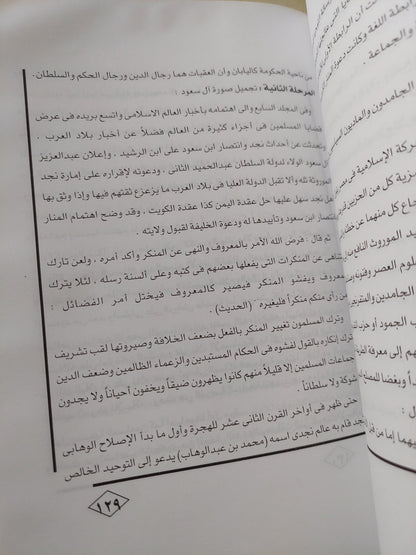 ص من ناحية الحكومة كاليابان وأن العقبات هما رجال الدين ورجال الحكم والسلطان.
المرحلة الثانية : تجميل صورة آل سعود :
في المجلد السابع والى اهتمامه بأخبار العالم الاسلامى واتسع بريده فى عرض
قضايا المسلمين فى أجزاء كثيرة من العالم فضلاً عن أخبار بلاد العرب .
وتحدثت عن أحداث نجد وانتصار ابن سعود على ابن الرشيد . وإعلان عبدالعزيز
آل سعود الولاء لدولة السلطان عبدالحميد الثانى . ودعوته لإقراره على إمارة نجد
الموروثة لله وألا تقبل الدولة العليا فى بلاد العرب ما يزعزع ثقتهم فيها وإذا وثق بها
أهل نجد سهل عليها حل عقدة اليمن كذا عقدة الكويت . وقد وضح اهتمام المنار
بانتصار ابن سعود وتأييدها له ودعوة الخليفة لقبول ولايته .
ثم قال : فرض الله الأمر بالمعروف والنهى عن المنكر وأكد أمره . ولعن تارك
التناهى عن المنكرات التى يفعلها بعضهم فى كتبه وعلى ألسنة رسله . لئلا يترك
المعروف ويفشو المنكر فيصير كالمعروف فيختل أمر الفضائل :
"من رأى منكم منكراً فليغيره" (الحديث) .
وترك المسلمون تغيير المنكر بالفعل بضعف الخلافة وصيرورتها لقب تشريف
وترك إنكاره بالقول لفشوه فى الحكام المستبدين والزعماء الظالمين وضعف الدين
جماعات المسلمين إلا قليلاً منهم كانوا يظهرون ضيقاً ويخفون أحياناً ولا يجدون
شوكة ولا سلطاناً .
حتى ظهر فى أواخر القرن الثانى عشر للهجرة وأول ما بدأ الإصلاح الوهابى
بنجد قام به عالم نجدى اسمه (محمد بن عبدالوهاب) يدعو إلى التوحيد الخالص
١٢٩
رابطة اللغة وكانت
والجماعة .
الجامدون والماديون
حركة الإسلامية فى مصر
كل من الحزبين
كل منهما عن
الموروث النافع
علوم العصر وفنونه
الجامدين والمتفرنجين
الجمود أو حزب
إلى معرفة
وبغضا للمصلح
إما من قبل